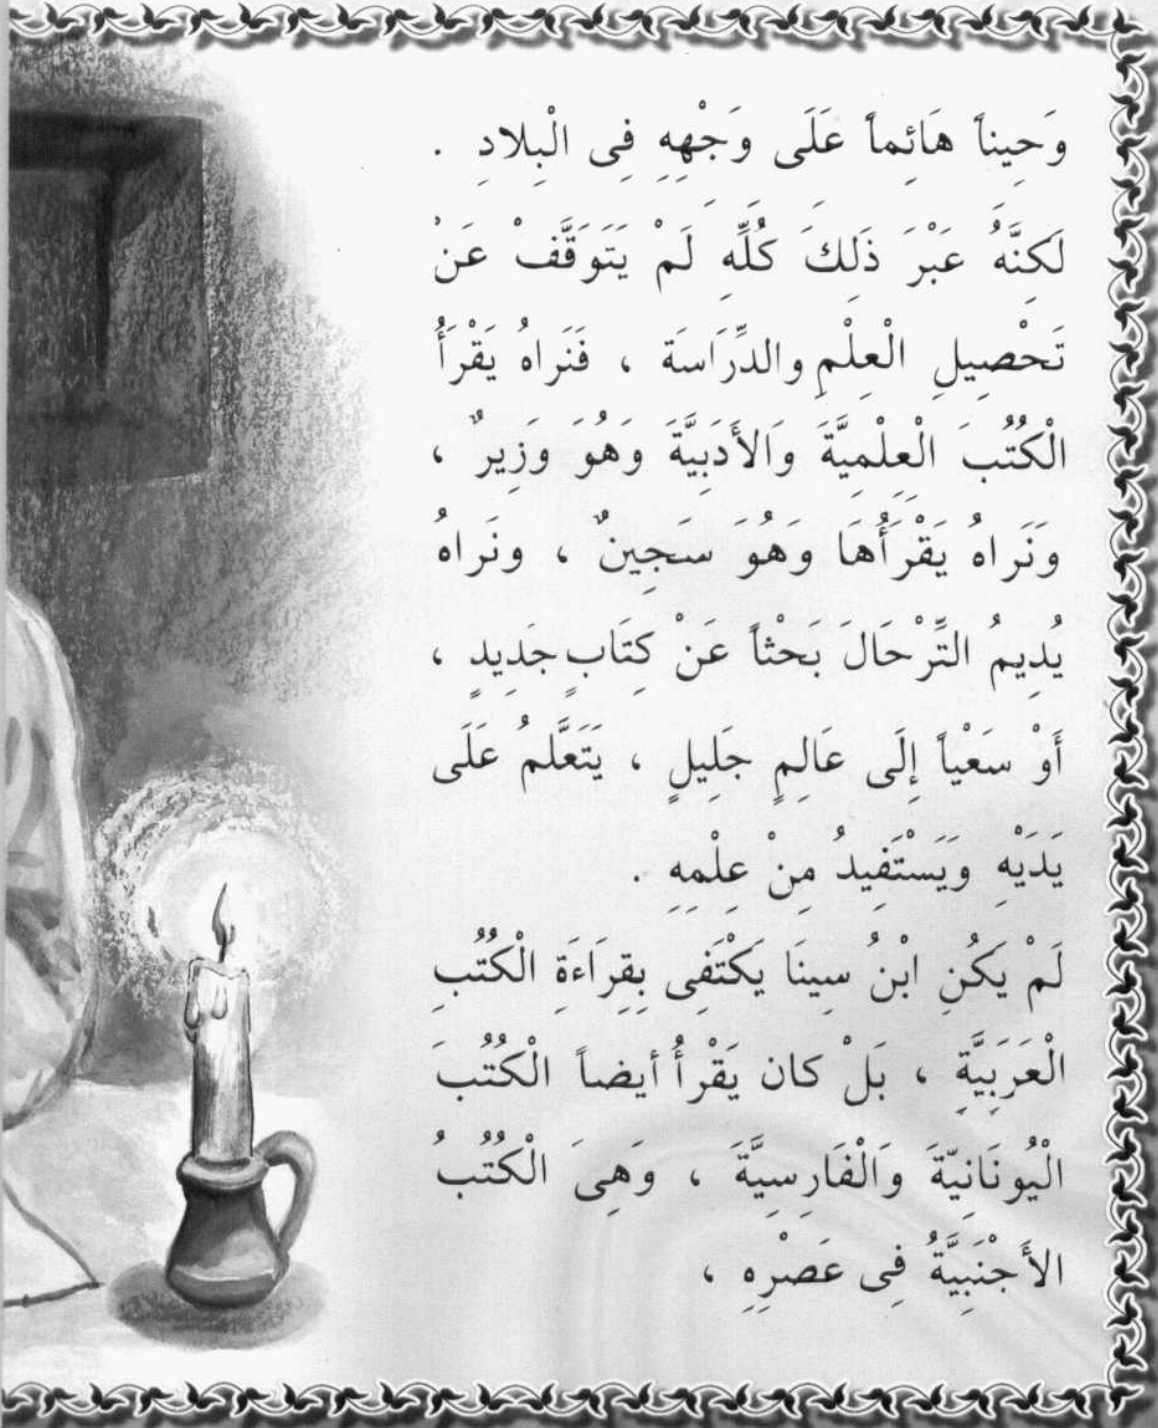 وَحِيناً هَائِماً عَلَى وَجْهِهِ فِى الْبِلادِ .
لَكِنَّهُ عَبْرَ ذَلِكَ كُلِّهِ لَمْ يَتَوَقَّفْ عَنْ
تَحْصِيلِ الْعِلْمِ والدِّرَاسَة ، فَنَراهُ يَقْرَأُ
الْكُتُبَ الْعِلْمِيَّةَ وَالأَدَبِيَّةَ وَهُوَ وَزِيرٌ ،
وَنَرَاهُ يَقْرَأُهَا وَهُوَ سَجِينٌ ، ونَراهُ
يُدِيمُ التِّرْحَالَ بَحْثاً عَنْ كِتَابٍ جَدِيدٍ ،
أَوْ سَعْياً إِلَى عَالِمٍ جَلِيلٍ ، يَتَعَلَّمُ عَلَى
يَدَيْهِ وَيَسْتَفِيدُ مِنْ عِلْمِهِ .
لَمْ يَكُنِ ابْنُ سِينَا يَكْتَفِى بِقِرَاءَةِ الْكُتُبِ
الْعَرَبِيَّةِ ، بَلْ كان يَقْرأُ أيضاً الْكُتُبَ
الْيُونَانِيّةَ وَالْفَارِسِيَّةَ ، وَهِىَ الْكُتُبُ
الأَجْنَبِيَّةُ فِى عَصْرِهِ ،